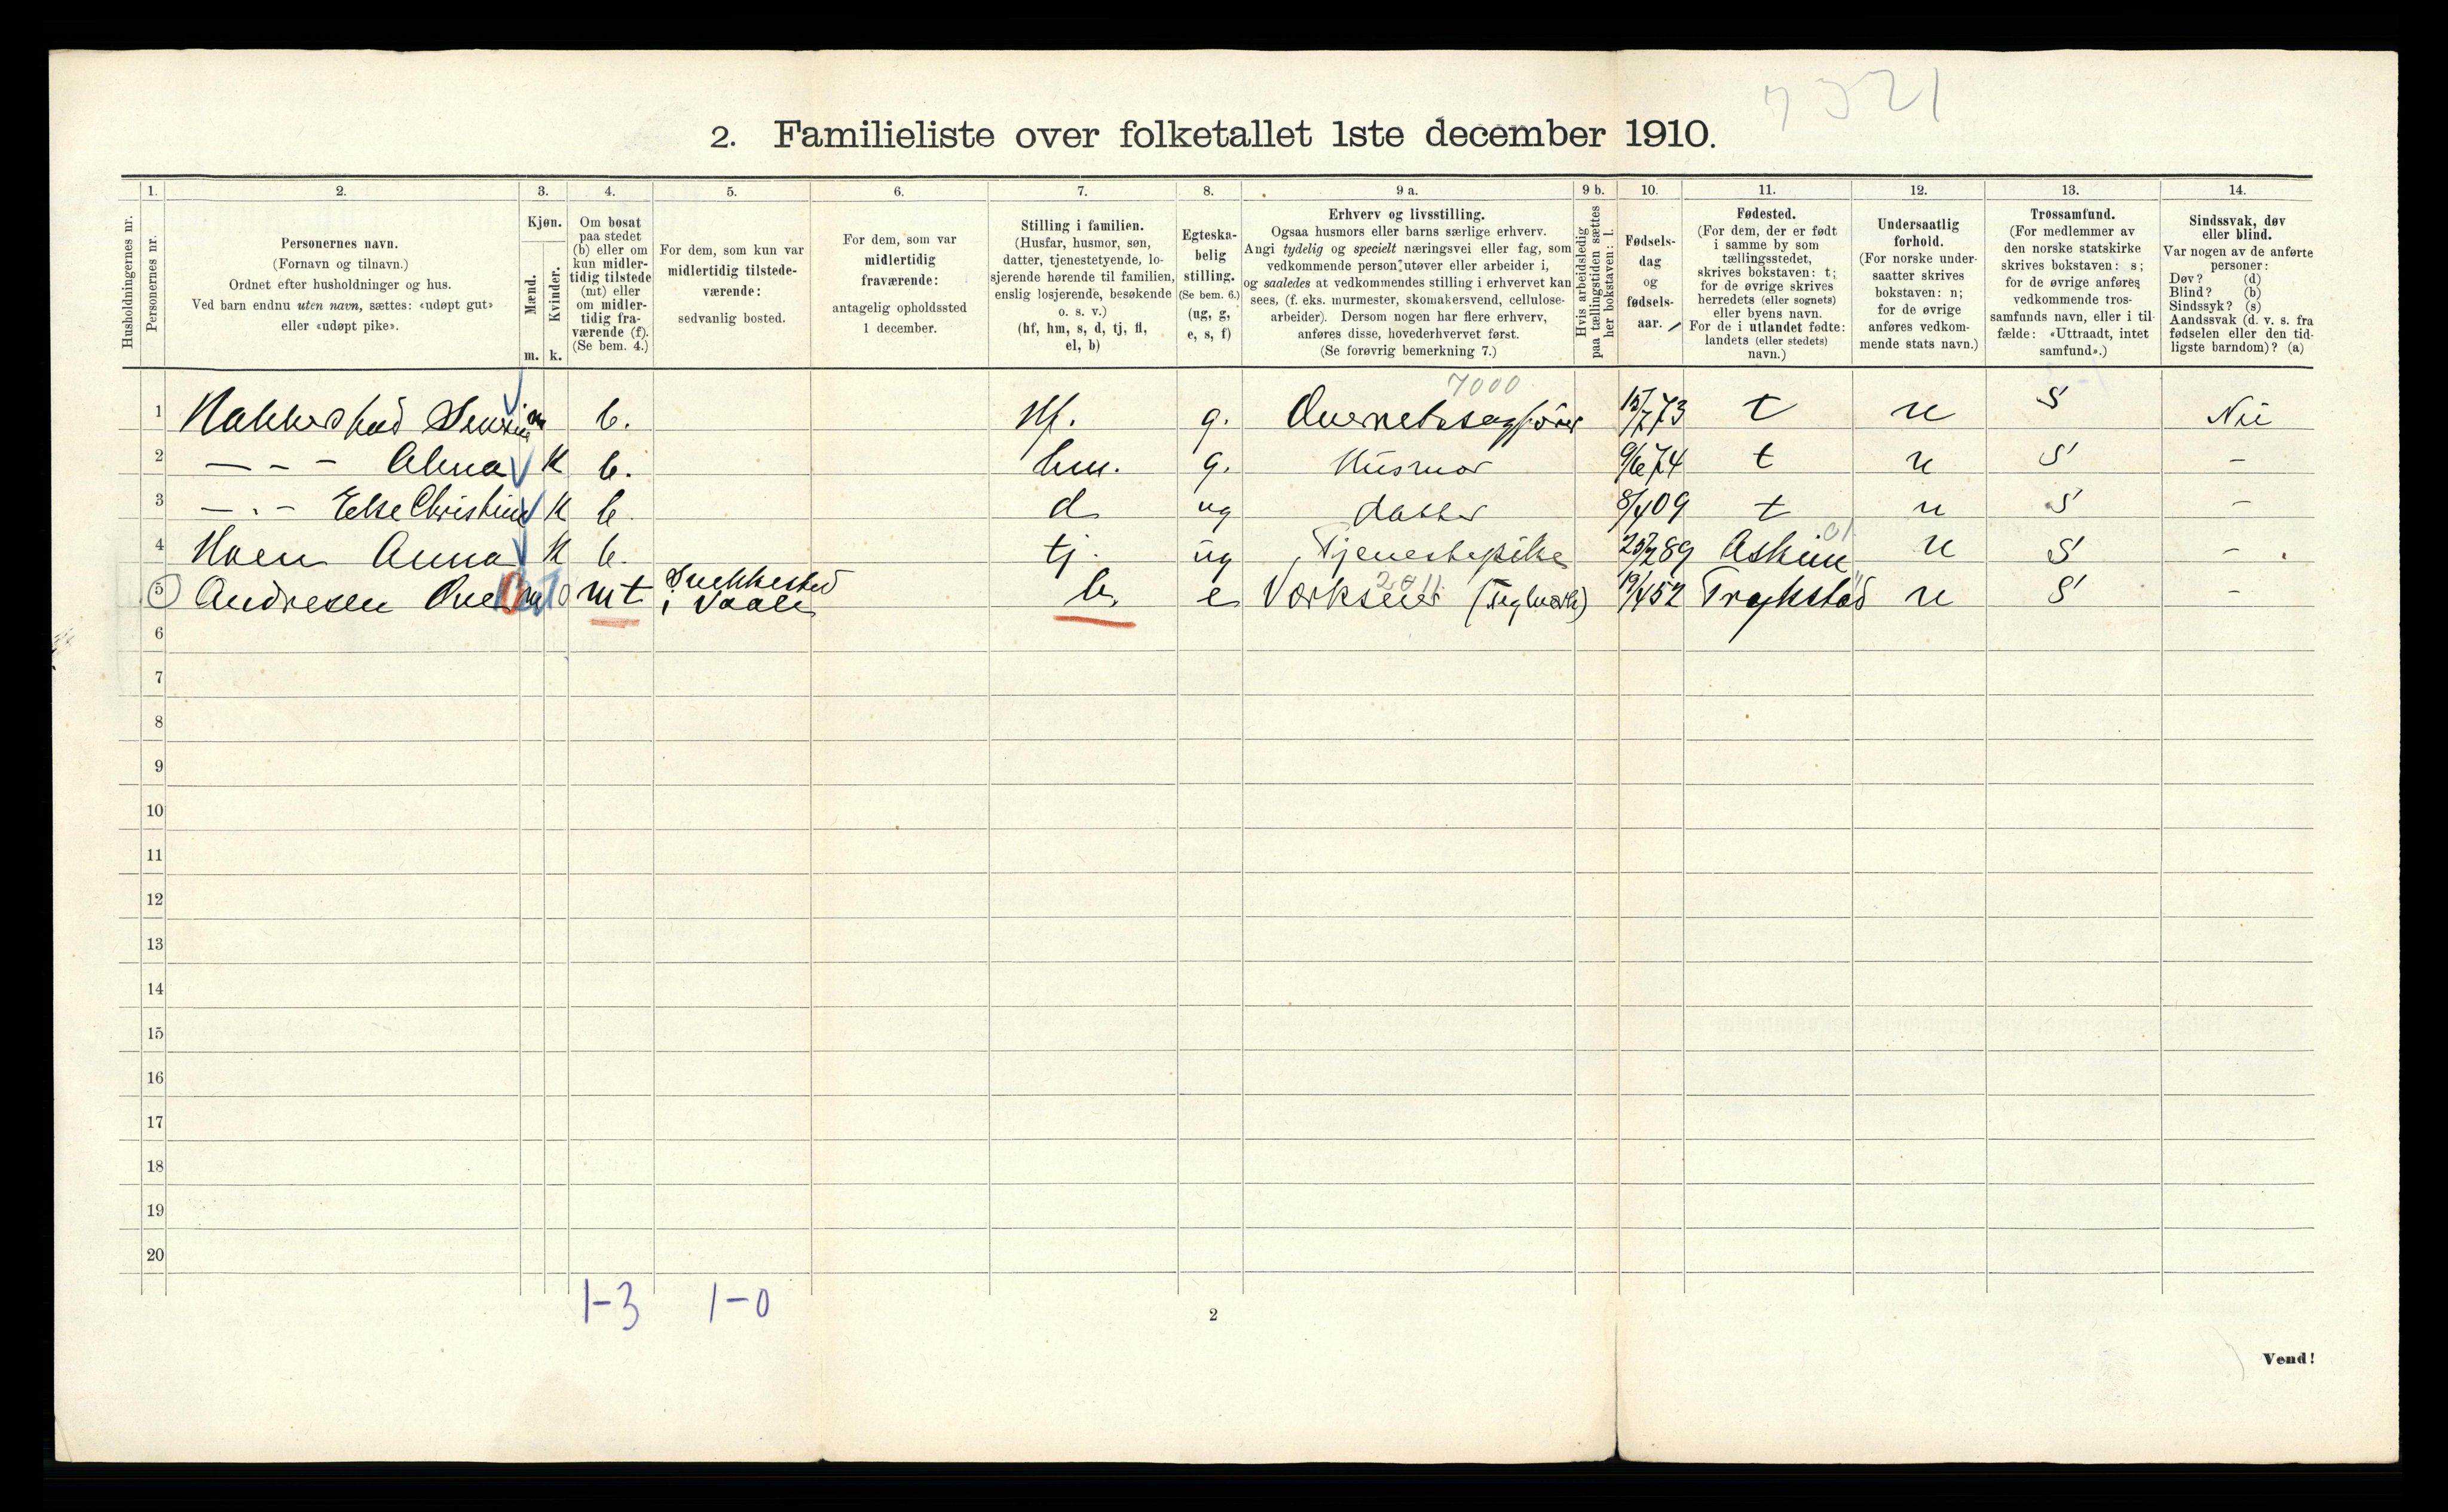 7321
2. Familieliste over folketallet 1ste december 1910.
1. 2. 3. 4. 5. 6. 7. 8. 9 a. 9 b. 10. 11. 12. 13. 14.
Husholdningernes nr.
Personernes nr.
Personernes navn.
(Fornavn og tilnavn.)
Ordnet efter husholdninger og hus.
Ved barn endnu uten navn, sættes: «udøpt gut»
eller «udøpt pike».
Kjøn.
Mænd.
Kvinder.
m. k.
Om bosat
paa stedet
(b) eller om
kun midler-
tidig tilstede
(mt) eller
om midler-
tidig fra-
værende (f).
(Se bem. 4.)
For dem, som kun var
midlertidig tilstede-
værende:
sedvanlig bosted.
For dem, som var
midlertidig
fraværende:
antagelig opholdssted
1 december.
Stilling i familien.
(Husfar, husmor, søn,
datter, tjenestetyende, lo-
sjerende hørende til familien,
enslig losjerende, besøkende
o. s. v.)
(hf, hm, s, d, tj, fl,
el, b)
Egteska-
belig
stilling.
(Se bem. 6.)
(ug, g,
e, s, f)
Erhverv og livsstilling.
Ogsaa husmors eller barns særlige erhverv.
Angi tydelig og specielt næringsvei eller fag, som
vedkommende person utøver eller arbeider i,
og saaledes at vedkommendes stilling i erhvervet kan
sees, (f. eks. murmester, skomakersvend, cellulose-
arbeider). Dersom nogen har flere erhverv,
anføres disse, hovederhvervet først.
(Se forøvrig bemerkning 7.)
Hvis arbeidsledig
paa tællingstiden sættes
her bokstaven: l.
Fødsels-
dag
og
fødsels-
aar.
Fødested.
(For dem, der er født
i samme by som
tællingsstedet,
skrives bokstaven: t;
for de øvrige skrives
herredets (eller sognets)
eller byens navn.
For de i utlandet fødte:
landets (eller stedets)
navn.)
Undersaatlig
forhold.
(For norske under-
saatter skrives
bokstaven: n;
for de øvrige
anføres vedkom-
mende stats navn.)
Trossamfund.
(For medlemmer av
den norske statskirke
skrives bokstaven: s;
for de øvrige anføres
vedkommende tros-
samfunds navn, eller i til-
fælde: «Uttraadt, intet
samfund».)
Sindssvak, døv
eller blind.
Var nogen av de anførte
personer:
Døv? (d)
Blind? (b)
Sindssyk? (s)
Aandssvak (d. v. s. fra
fødselen eller den tid-
ligste barndom)? (a)
7000
1 m b. Hf. g. 15/7 73 t n s
2 — - - k b. hm. g. Husmor 9/6 74 t n s —
3 — - - Else Christine k b. d ug datter 8/4 09 t n s —
4 Hoen Anna k b. tj. ug Tjenestepike Askim n s —
5 Andresen m mt i Vaale b. e Værkseier (Teglverk) 19/4 52 Trykstad n s —
6
7
8
9
10
11
12
13
14
15
16
17
18
19
20
1-3 1-0
2
Vend!